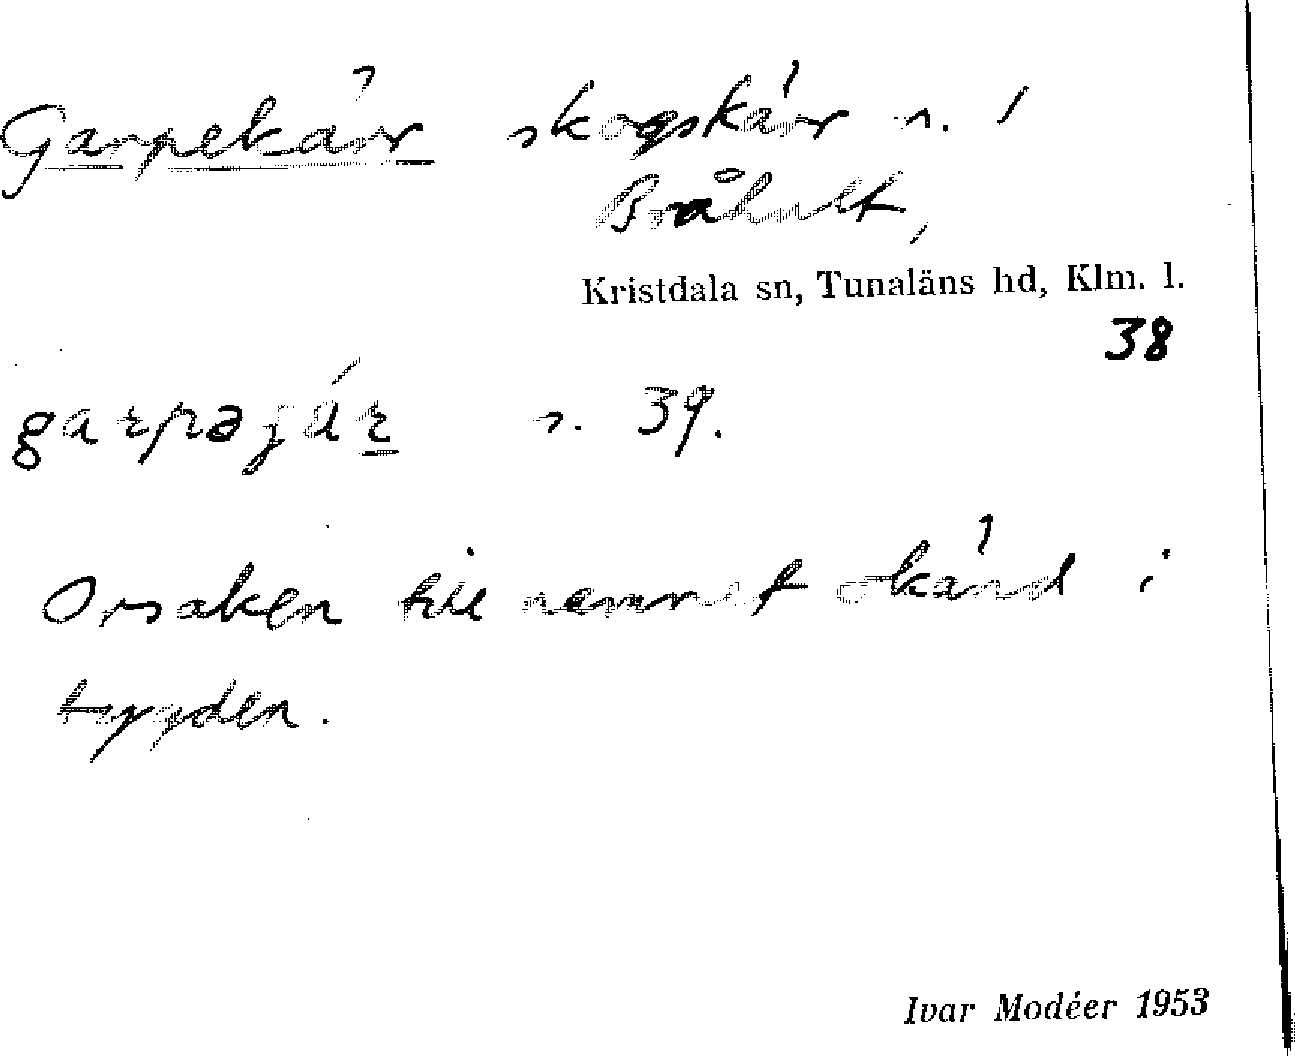 Garpekärr skogskärr n. i
Bråhult,
Kristdala sn, Tunaläns hd, Klm. l.
38
garpəjär n. 39.
Orsaken till namnet okänd i
bygden.
Ivar Modéer 1953